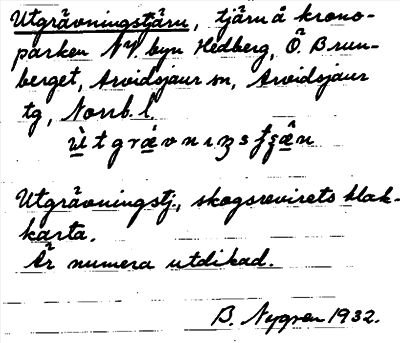 Utgrävningstjärn, tjärn å krono-
parken NV. byn Hedberg, Ö. Brun-
berget, Arvidsjaur sn, Arvidsjaur
tg, Norrb. l.

Utgrävningstj., skogsrevirets blak-
karta.
Är numera utdikad.
B. Nygren 1932.